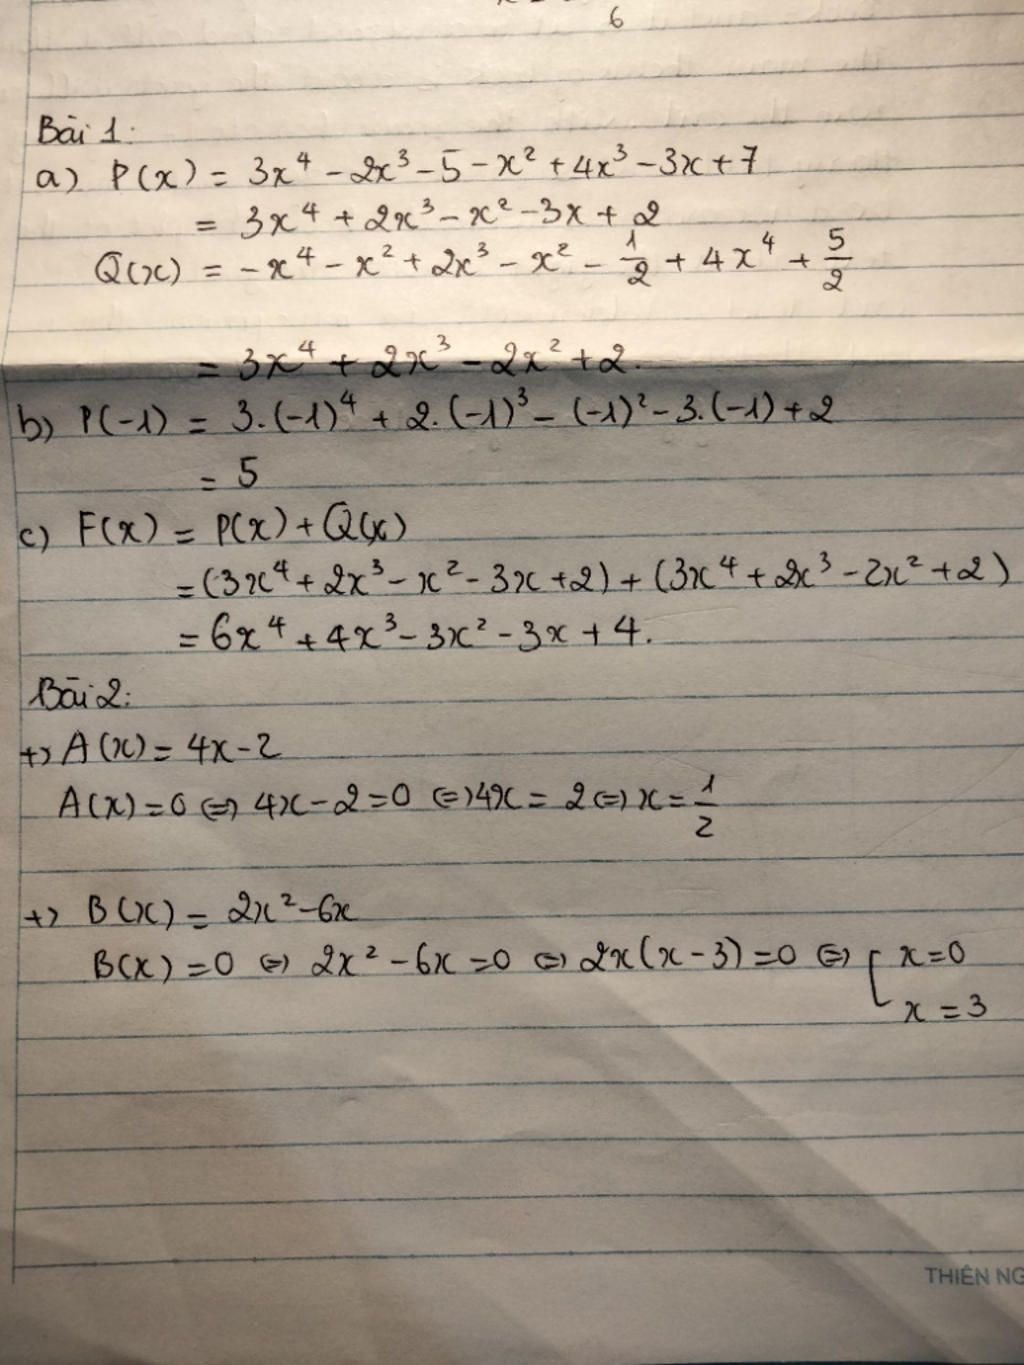 6
Bài 1:
a) P(x) = 3x⁴ - 2x³ - 5 - x² + 4x³ - 3x + 7
= 3x⁴ + 2x³ - x² - 3x + 2
Q(x) = -x⁴ - x² + 2x³ - x² - 1/2 + 4x⁴ + 5/2
= 3x⁴ + 2x³ - 2x² + 2.
b) P(-1) = 3.(-1)⁴ + 2.(-1)³ - (-1)² - 3.(-1) + 2
= 5
c) F(x) = P(x) + Q(x)
= (3x⁴ + 2x³ - x² - 3x + 2) + (3x⁴ + 2x³ - 2x² + 2)
= 6x⁴ + 4x³ - 3x² - 3x + 4.
Bài 2:
+) A(x) = 4x - 2
A(x) = 0 ⇔ 4x - 2 = 0 ⇔ 4x = 2 ⇔ x = 1/2
+) B(x) = 2x² - 6x
B(x) = 0 ⇔ 2x² - 6x = 0 ⇔ 2x(x - 3) = 0 ⇔ [ x = 0
x = 3
THIÊN NG